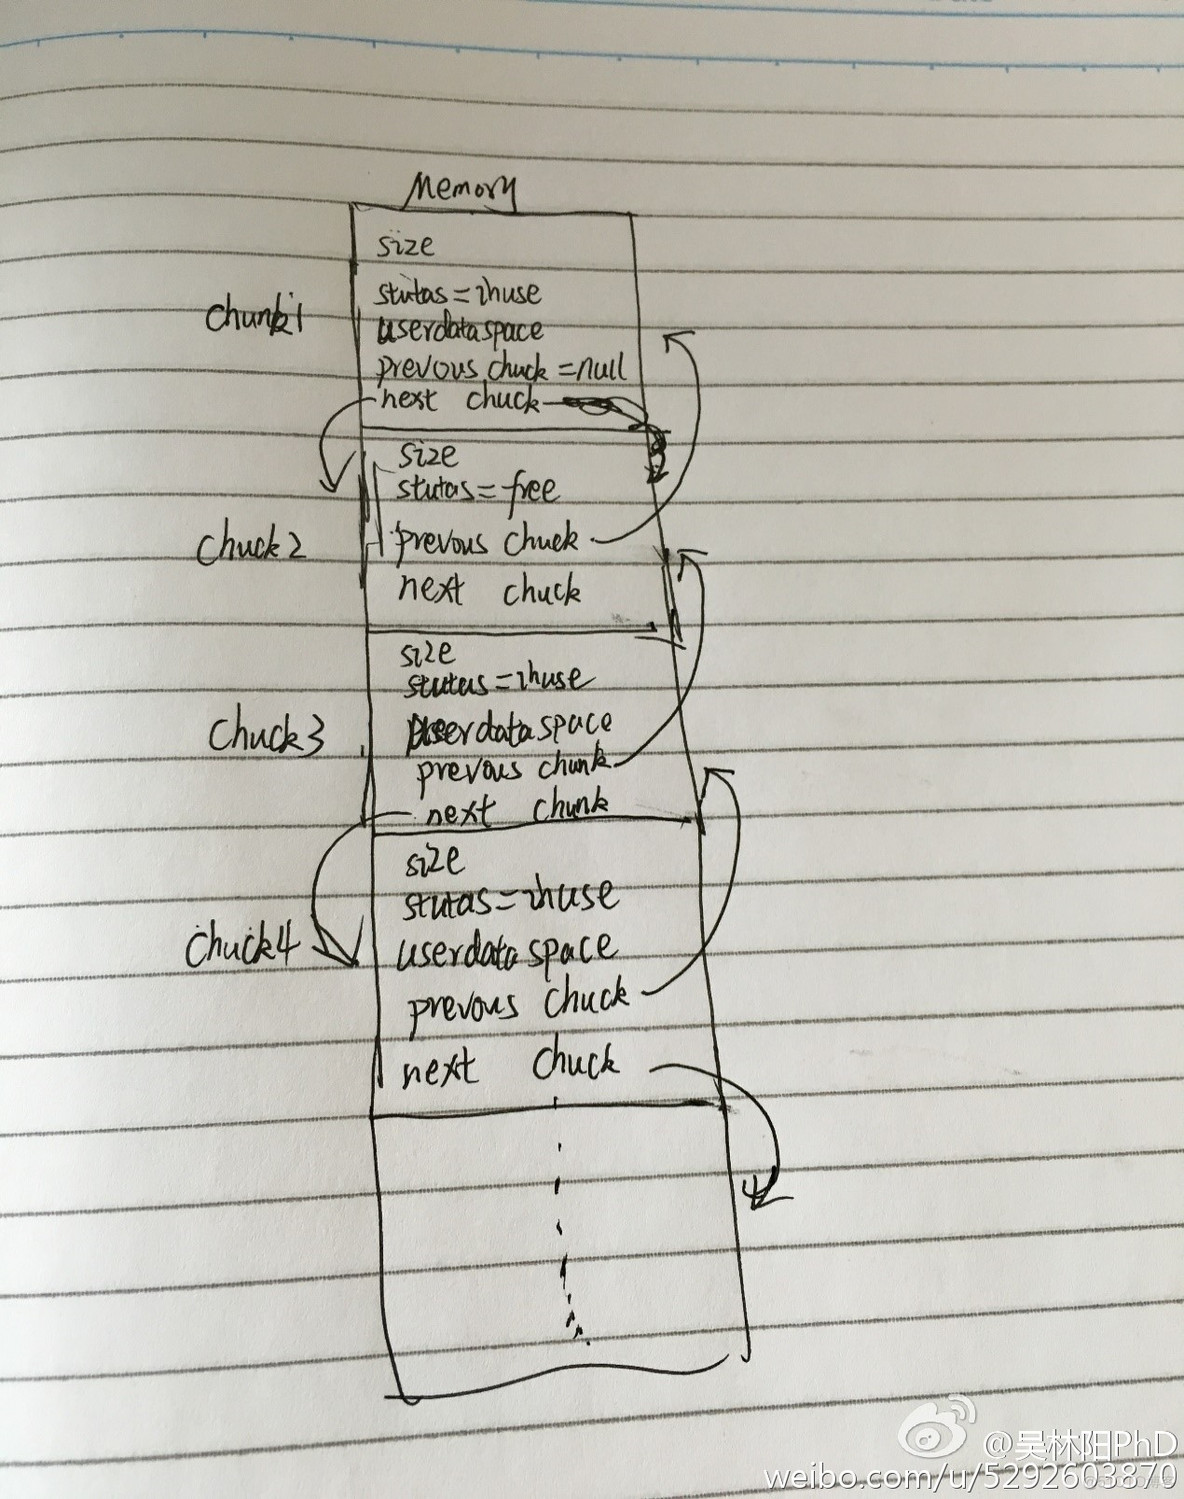 Memory
size
stutas=inuse
chunk1
userdataspace
prevous chuck=null
next chuck
size
stutas=free
chuck2
prevous chuck
next chuck
size
stutas=inuse
chuck3
userdataspace
prevous chunk
next chunk
size
stutas=inuse
chuck4
userdataspace
prevous chuck
next chuck
@吴林阳PhD
weibo.com/u/5292603870